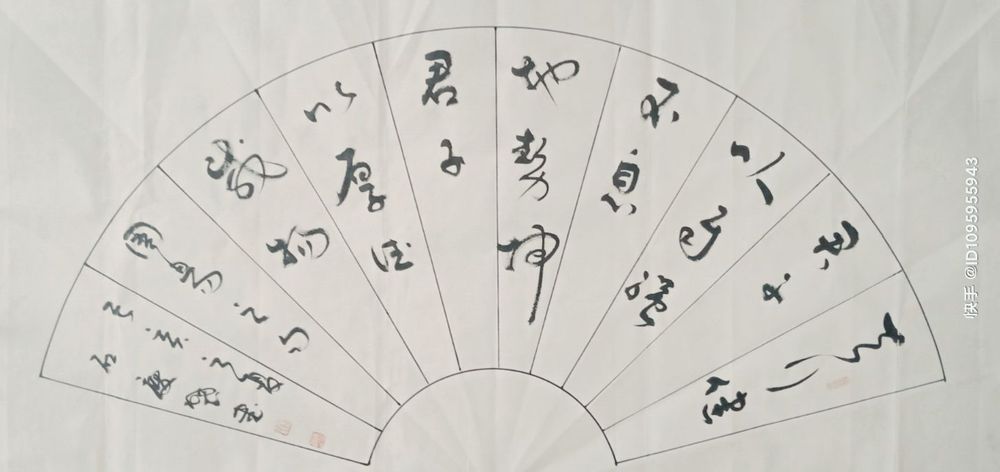 天行健
君子
以自强
不息
地势坤
君子
以厚德
载物
周易之
快手 @ID1095955943